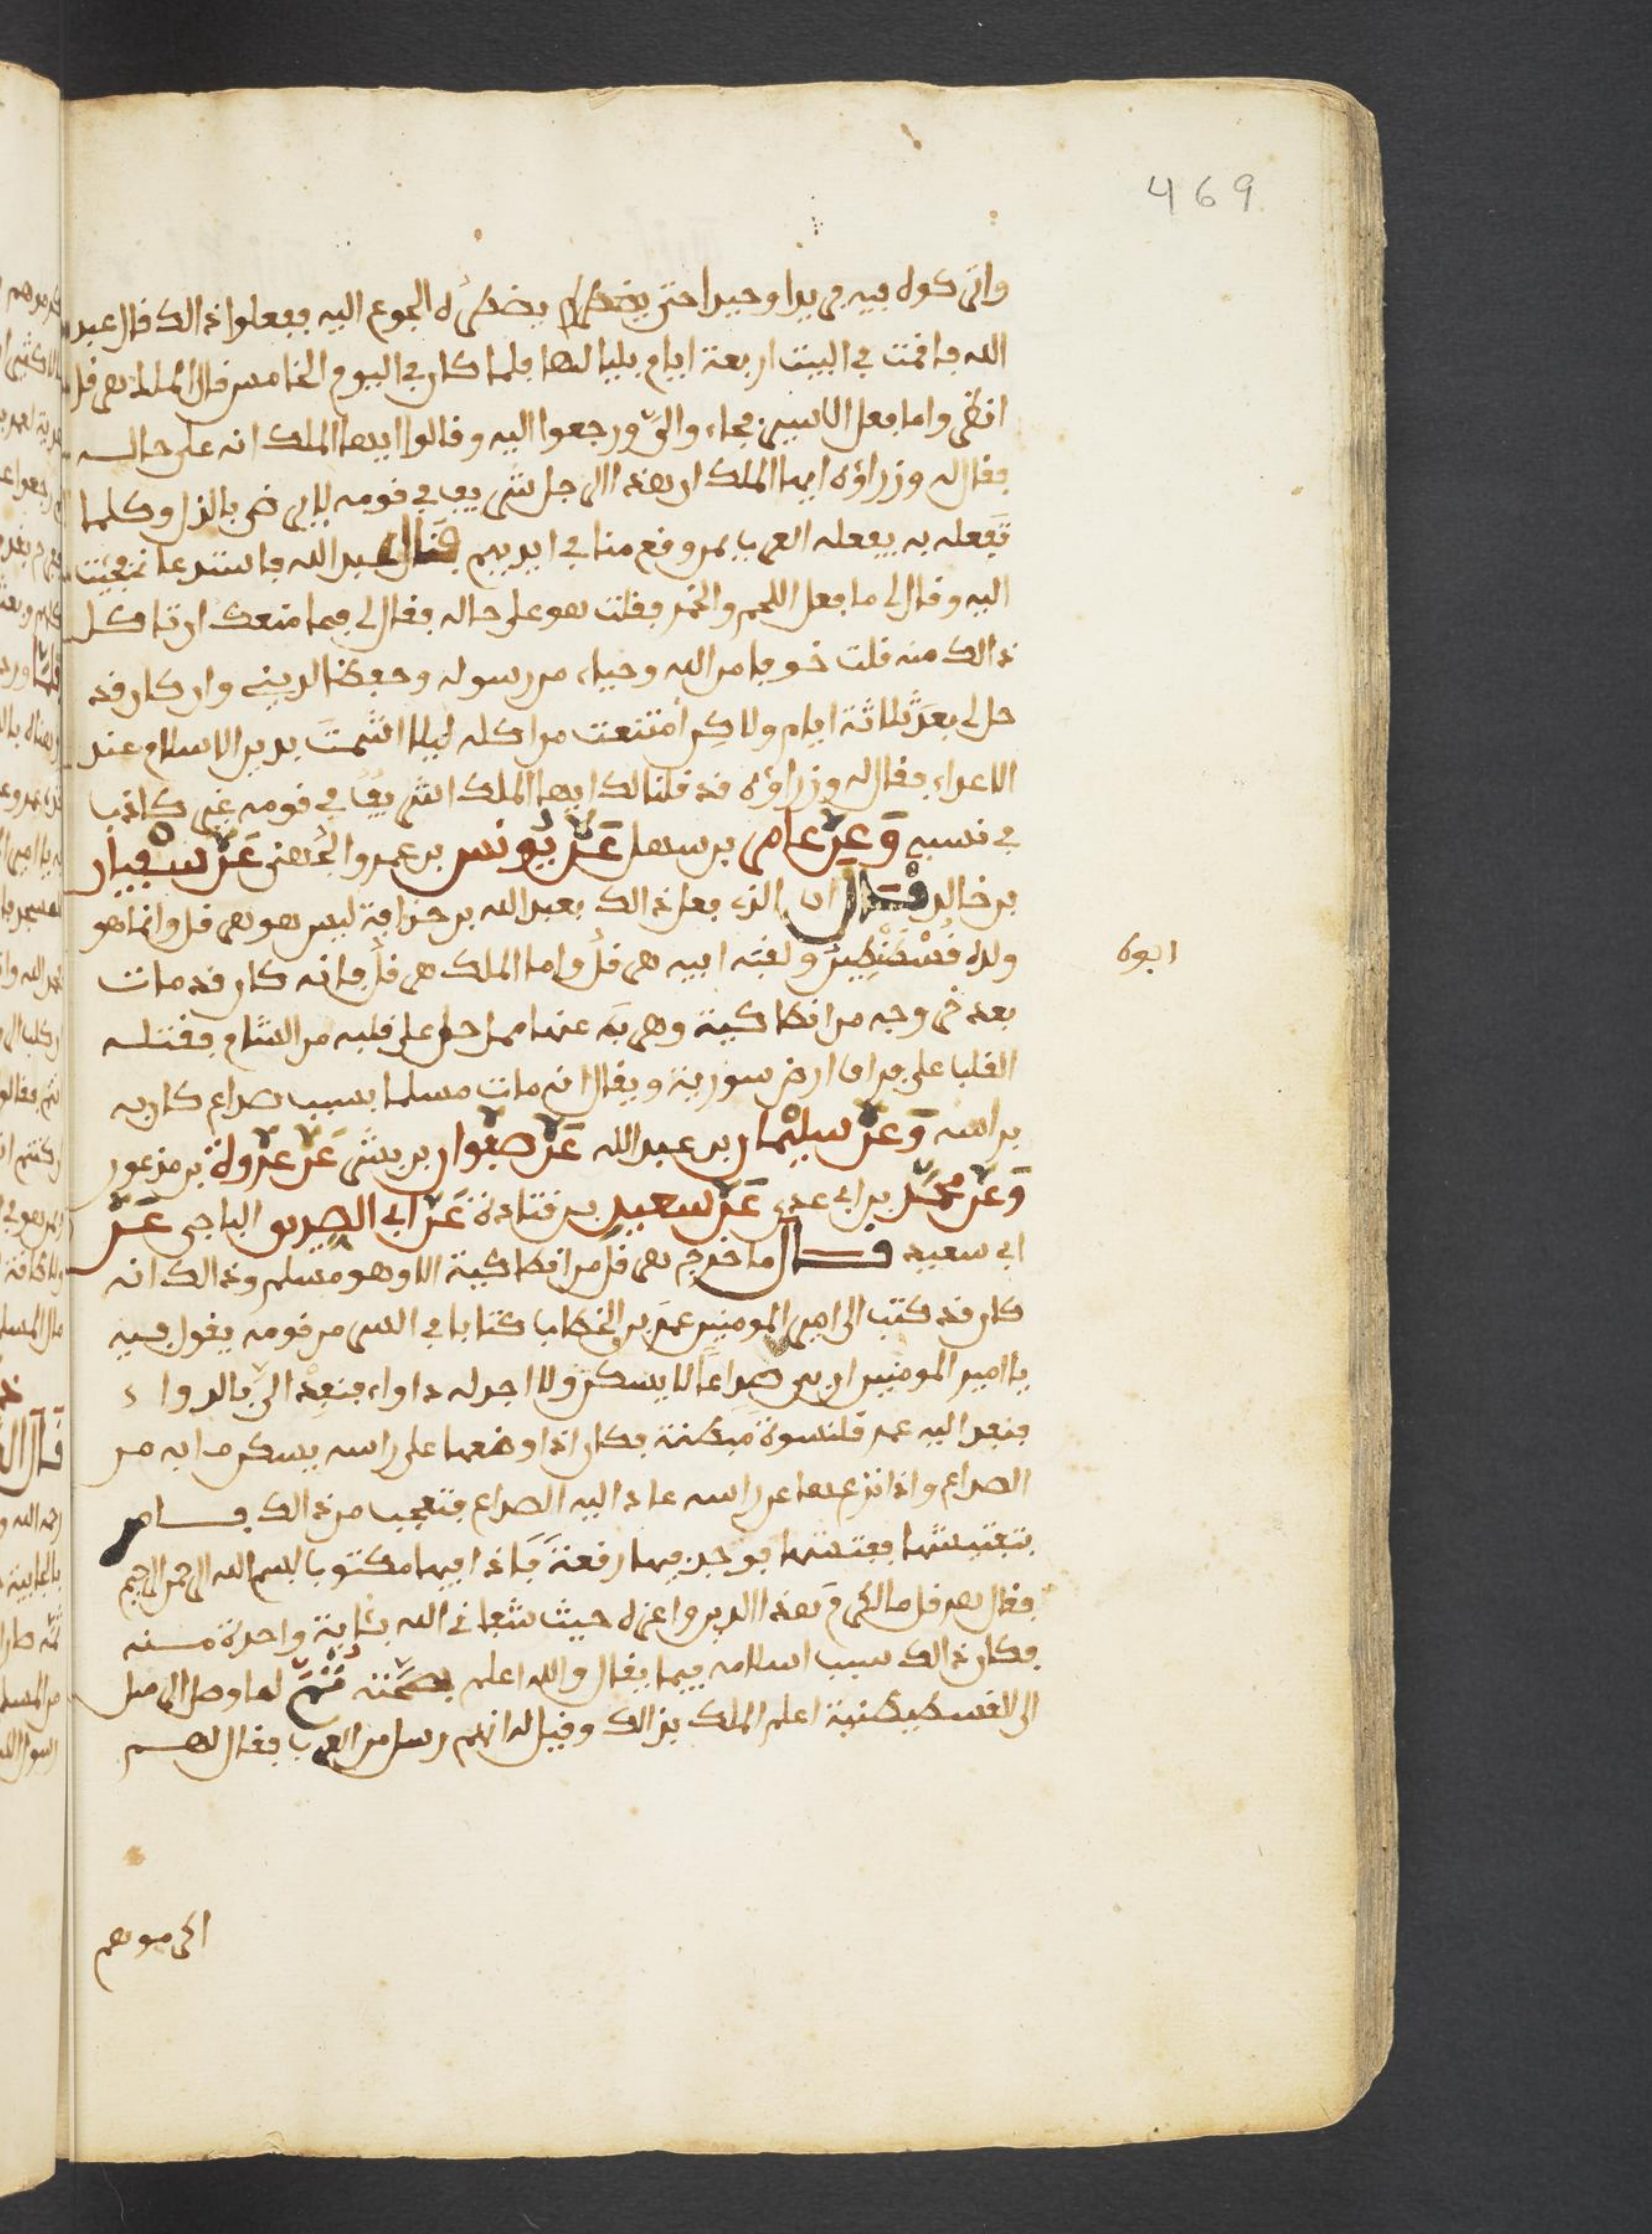 469
واتركوه فيه فريدا وحيدا حتى يضطر يضطره الجوع اليه ففعلوا ذالك قال عبد
الله فاقمت في البيت اربعة ايام بلياليها فلما كان في اليوم الخامس قال الملك هرقل
انظروا ما فعل الاسير فجاءوا الي ورجعوا اليه وقالوا ايها الملك انه على حاله
فقال له وزراؤه ايها الملك ان هذا الرجل شريف في قومه لا يرضى بالذل وكلما
تفعله به يفعله العرب بمن وقع منا في ايديهم قال عبد الله فاستدعاني فجئت
اليه وقال لي ما فعل اللحم والخمر فقلت هو على حاله فقال لي فما منعك ان تاكل
ذالك منه قلت خوفا من الله وحياء من رسوله وحفظا لديني وان كان قد
حل لي بعد ثلاثة ايام ولاكن امتنعت من اكله ليلا اشمت بدين الاسلام عند
الاعداء فقال له وزراؤه قد قلنا لك ايها الملك انه شريف في قومه غير كاذب
في نسبه وعن عامر بن سهل عن يونس بن عمرو الجهني عن سفيان
بن خالد قال ان الذي فعل ذالك بعبد الله بن حذافة ليس هو هرقل وانما هو
ولده قسطنطين ولقبه ابيه هرقل واما الملك هرقل فانه كان قد مات
ابوه
بعد خروجه من انطاكية وهربه عنها مما حل على قلبه من الشام فقتله
القلب على فراق ارض سورية ويقال انه مات مسلما بسبب صداع كان به
براسه وعن سليمان بن عبد الله عن صفوان بن بشر عن عروة بن مذعور
وعن محمد بن ابي عدي عن سعيد بن قتادة عن ابي الصديق الناجي عن
ابي سعيد قال ما خرج هرقل من انطاكية الا وهو مسلم وذالك انه
كان قد كتب الى امير المومنين عمر بن الخطاب كتابا في السر من قومه يقول فيه
يا امير المومنين ان بي صداعا لا يسكن ولا اجد له داواء فنفذ الي بالدواء
فنفذ اليه عمر قلنسوة مبطنة فكان اذا وضعها على راسه يسكن ما به من
الصداع واذا نزعها عن راسه عاد اليه الصداع فتعجب من ذالك فامر
بتفتيشها ففتشها فوجد فيها رقعة فاذا فيها مكتوبا بسم الله الرحمن الرحيم
فقال هرقل ما اكرم هذا الدين واعزه حيث شفاني الله بئاية واحدة منه
فكان ذالك سبب اسلامه فيما يقال والله اعلم لما وصل الى
الى القسطنطينية اعلم الملك بذالك وقيل له انهم رسل من العرب فقال لهم
اكرموهم